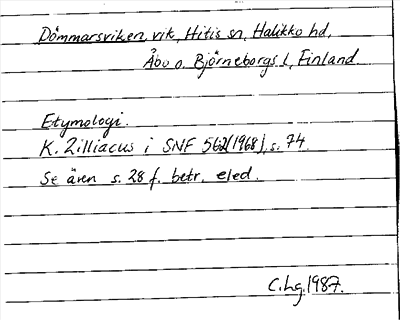 Dömmarsviken, vik, Hitis sn, Halikko hd,
Åbo o. Björneborgs l, Finland
Etymologi.
K. Zilliacus i SNF 562(1968), s. 74.
Se även s. 28 f. betr. eled.
C.hg.1987.